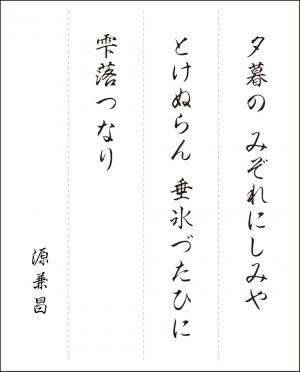 夕暮の みぞれにしみや
とけぬらん 垂氷づたひに
雫落つなり
源兼昌